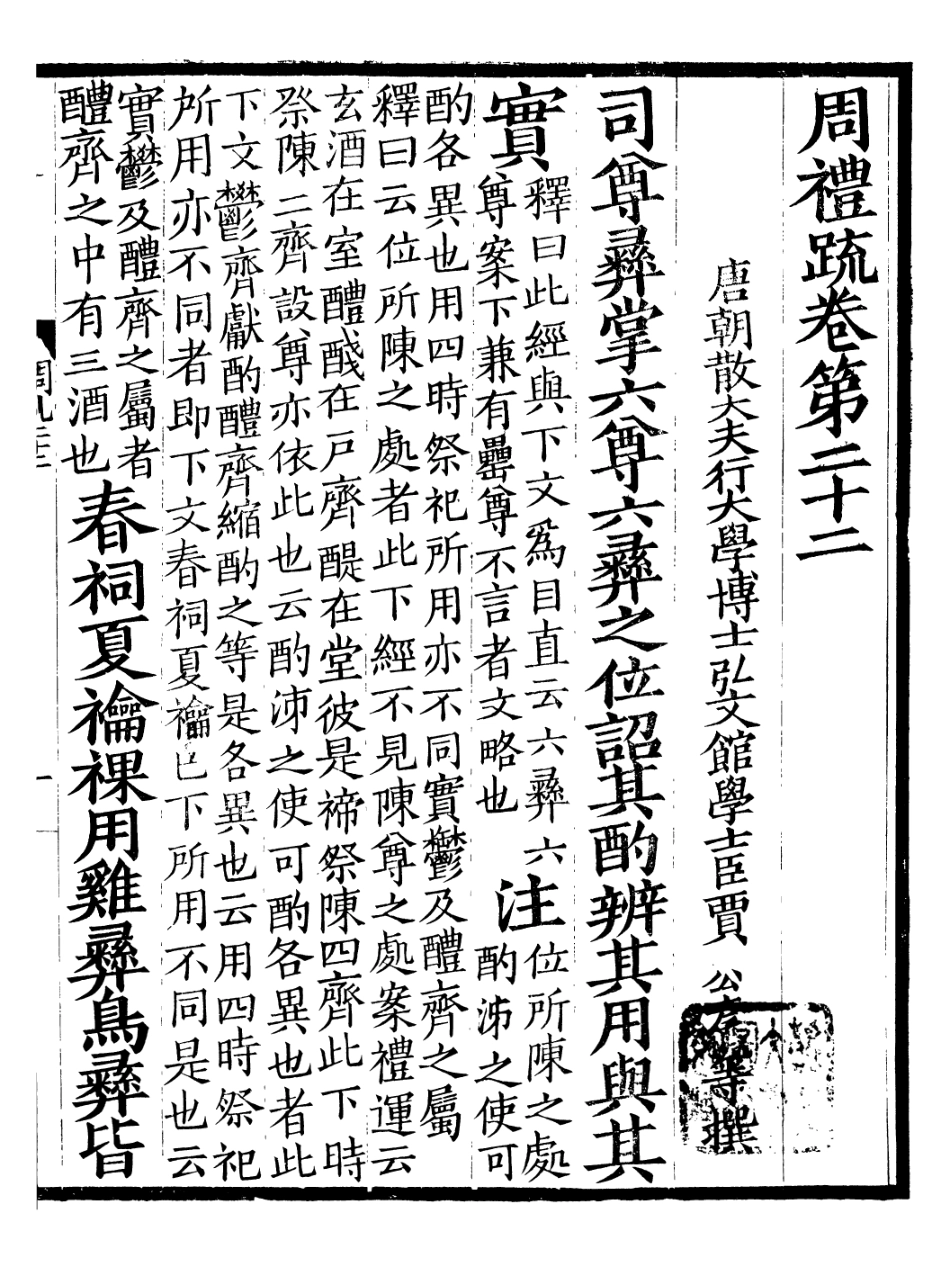 周禮疏卷第二十二
唐朝散大夫行大學博士弘文館學士臣賈 公彥等撰
司尊彝掌六尊六彝之位詔其酌辨其用與其
實
釋曰此經與下文爲目直云六彝六
尊案下兼有罍尊不言者文略也
注
位所陳之處
酌泲之使可
酌各異也用四時祭祀所用亦不同實鬱及醴齊之屬
釋曰云位所陳之處者此下經不見陳尊之處案禮運云
玄酒在室醴醆在戶齊醍在堂彼是禘祭陳四齊此下時
祭陳二齊設尊亦依此也云酌泲之使可酌各異也者此
下文鬱齊獻酌醴齊縮酌之等是各異也云用四時祭祀
所用亦不同者即下文春祠夏禴已下所用不同是也云
實鬱及醴齊之屬者
醴齊之中有三酒也
春祠夏禴祼用雞彝鳥彝皆